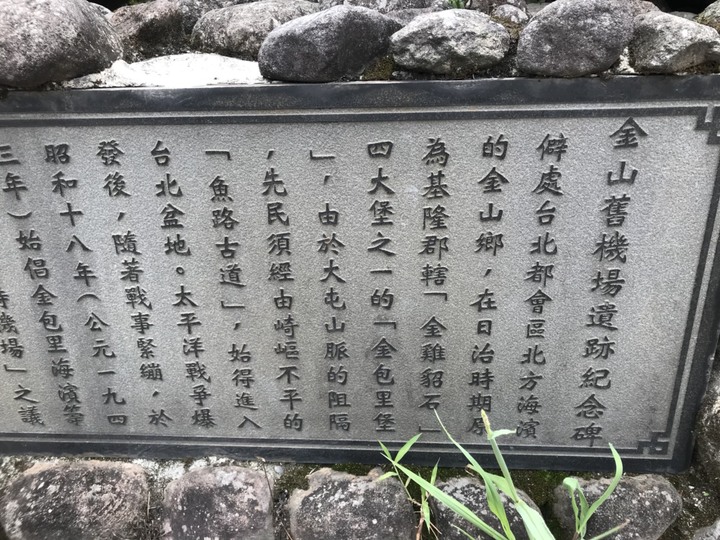 金山舊機場遺跡紀念碑
僻處台北都會區北方海濱
的金山鄉，在日治時期原
為基隆郡轄「金雞貂石」
四大堡之一的「金包里堡
」，由於大屯山脈的阻隔
，先民須經由崎嶇不平的
「魚路古道」，始得進入
台北盆地。太平洋戰爭爆
發後，隨著戰事緊繃，於
昭和十八年（公元一九四
三年）始倡金包里海濱築
機場」之議